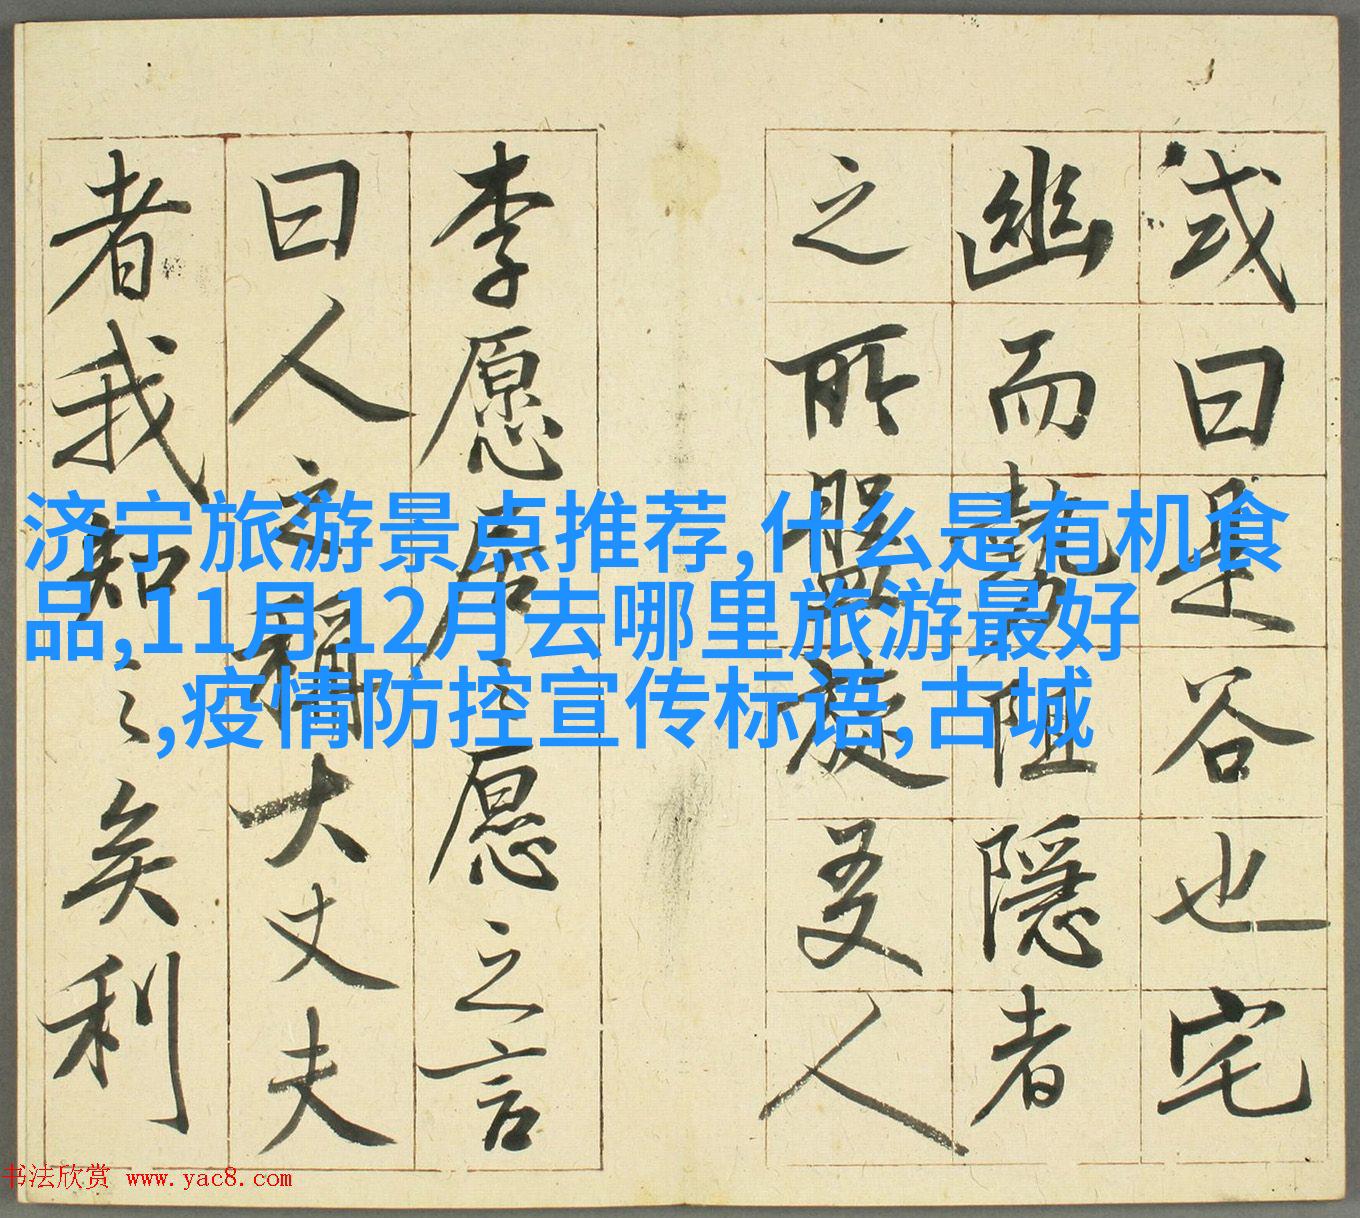 或曰是谷也宅
幽而勢阻隱者
之所盤旋友人
李愿居之愿之言
曰人之稱大丈夫
者我知之矣利
济宁旅游景点推荐,什么是有机食
品,11月12月去哪里旅游最好
,疫情防控宣传标语,古城
书法欣赏 www.yac8.com